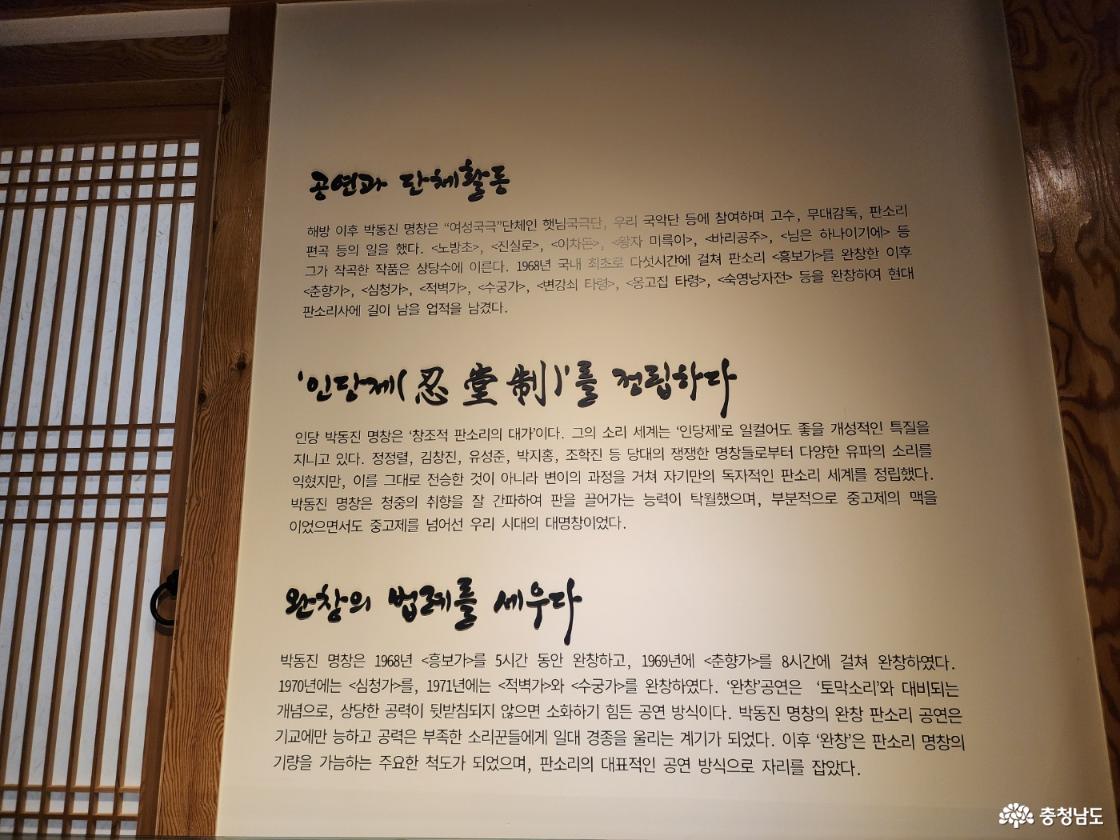 공연과 단체활동
해방 이후 박동진 명창은 “여성국극”단체인 햇님국극단, 우리 국악단 등에 참여하며 고수, 무대감독, 판소리
편곡 등의 일을 했다. <노방초>, <진실로>, <이차돈>, <왕자 미륵이>, <바리공주>, <님은 하나이기에> 등
그가 작곡한 작품은 상당수에 이른다. 1968년 국내 최초로 다섯시간에 걸쳐 판소리 <흥보가>를 완창한 이후
<춘향가>, <심청가>, <적벽가>, <수궁가>, <변강쇠 타령>, <옹고집 타령>, <숙영낭자전> 등을 완창하여 현대
판소리사에 길이 남을 업적을 남겼다.
‘인당제(忍堂制)’를 정립하다
인당 박동진 명창은 ‘창조적 판소리의 대가’이다. 그의 소리 세계는 ‘인당제’로 일컬어도 좋을 개성적인 특질을
지니고 있다. 정정렬, 김창진, 유성준, 박지홍, 조학진 등 당대의 쟁쟁한 명창들로부터 다양한 유파의 소리를
익혔지만, 이를 그대로 전승한 것이 아니라 변이의 과정을 거쳐 자기만의 독자적인 판소리 세계를 정립했다.
박동진 명창은 청중의 취향을 잘 간파하여 판을 끌어가는 능력이 탁월했으며, 부분적으로 중고제의 맥을
이었으면서도 중고제를 넘어선 우리 시대의 대명창이었다.
완창의 법례를 세우다
박동진 명창은 1968년 <흥보가>를 5시간 동안 완창하고, 1969년에 <춘향가>를 8시간에 걸쳐 완창하였다.
1970년에는 <심청가>를, 1971년에는 <적벽가>와 <수궁가>를 완창하였다. ‘완창’공연은 ‘토막소리’와 대비되는
개념으로, 상당한 공력이 뒷받침되지 않으면 소화하기 힘든 공연 방식이다. 박동진 명창의 완창 판소리 공연은
기교에만 능하고 공력은 부족한 소리꾼들에게 일대 경종을 울리는 계기가 되었다. 이후 ‘완창’은 판소리 명창의
기량을 가늠하는 주요한 척도가 되었으며, 판소리의 대표적인 공연 방식으로 자리를 잡았다.
충청남도